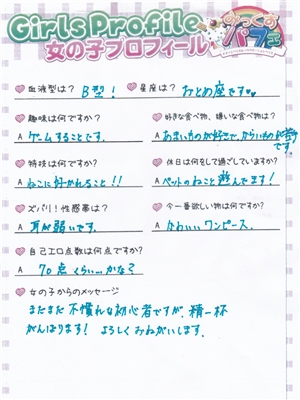 Girls Profile
女の子プロフィール
みっくすパフェ
血液型は?
B型!
星座は?
おとめ座です
趣味は何ですか?
A ゲームすることです。
好きな食べ物、嫌いな食べ物は?
A あまいものが好きで、からいものが苦手です。
特技は何ですか?
A ねこに好かれること!!
休日は何をして過ごしていますか?
A ペットのねこと遊んでます!
ズバリ!性感帯は?
A 耳が弱いです。
今一番欲しい物は何ですか?
A かわいいワンピース。
自己エロ点数は何点ですか?
A 70点くらい...かな?
女の子からのメッセージ
まだまだ不慣れな初心者ですが、精一杯
がんばります! よろしくおねがいします。